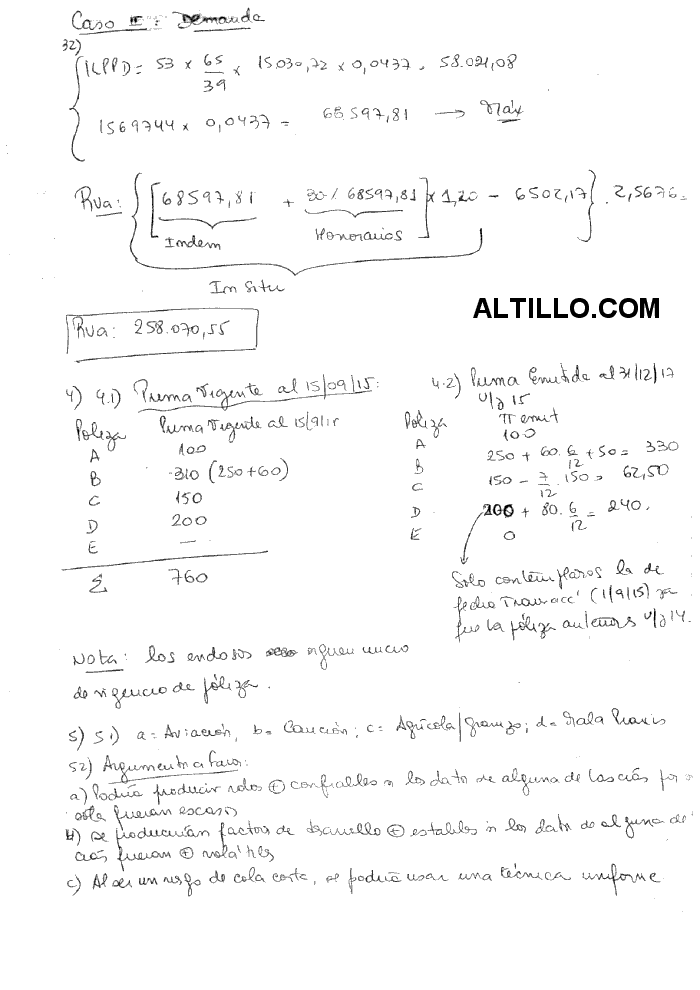 Caso II: Demanda
32)
ILPPD = 53 x 65/39 x 15030,72 x 0,0437 = 58.021,08
1569744 x 0,0437 = 68597,81 → Máx
Rva: { [ 68597,81 + 30% 68597,81 ] x 1,20 - 6502,17 } . 2,5676 =
Indem Honorarios
In Situ
ALTILLO.COM
Rva: 258.070,55
4) 4.1) Prima Vigente al 15/09/15:
Póliza Prima Vigente al 15/9/15
A 100
B 310 (250+60)
C 150
D 200
E —
Σ 760
Nota: los endosos siguen inicio
de vigencia de póliza.
4.2) Prima Emitida al 31/12/17
u/a 15
Póliza π emit
A 100
B 250 + 60. 6/12 + 50 = 330
C 150 - 7/12 . 150 = 62,50
D 200 + 80. 6/12 = 240.
E 0
Solo contemplaros la de
fecha Transacc' (1/9/15) ya
que la póliza anterior es u/a 14.
5) 51) a = Aviación, b = Caución; c = Agrícola/granizo; d = Mala Praxis
52) Argumento a favor:
a) Podría producir ratios ⊕ confiables si los datos de alguna de las cías por
esta fueran escasos
b) se producirían factores de desarrollo ⊕ estables si los datos de alguna de
cías fueran ⊕ volátiles
c) Al ser un riesgo de cola corta, se podría usar una técnica uniforme